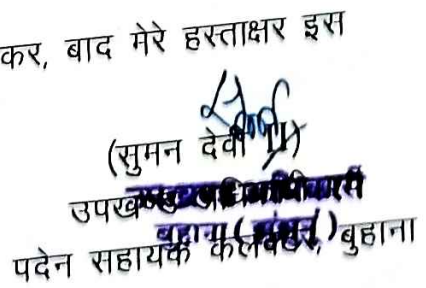 कर, बाद मेरे हस्ताक्षर इस
(सुमन देवी II)
उपखण्ड
पदेन सहायक कलक्टर, बुहाना